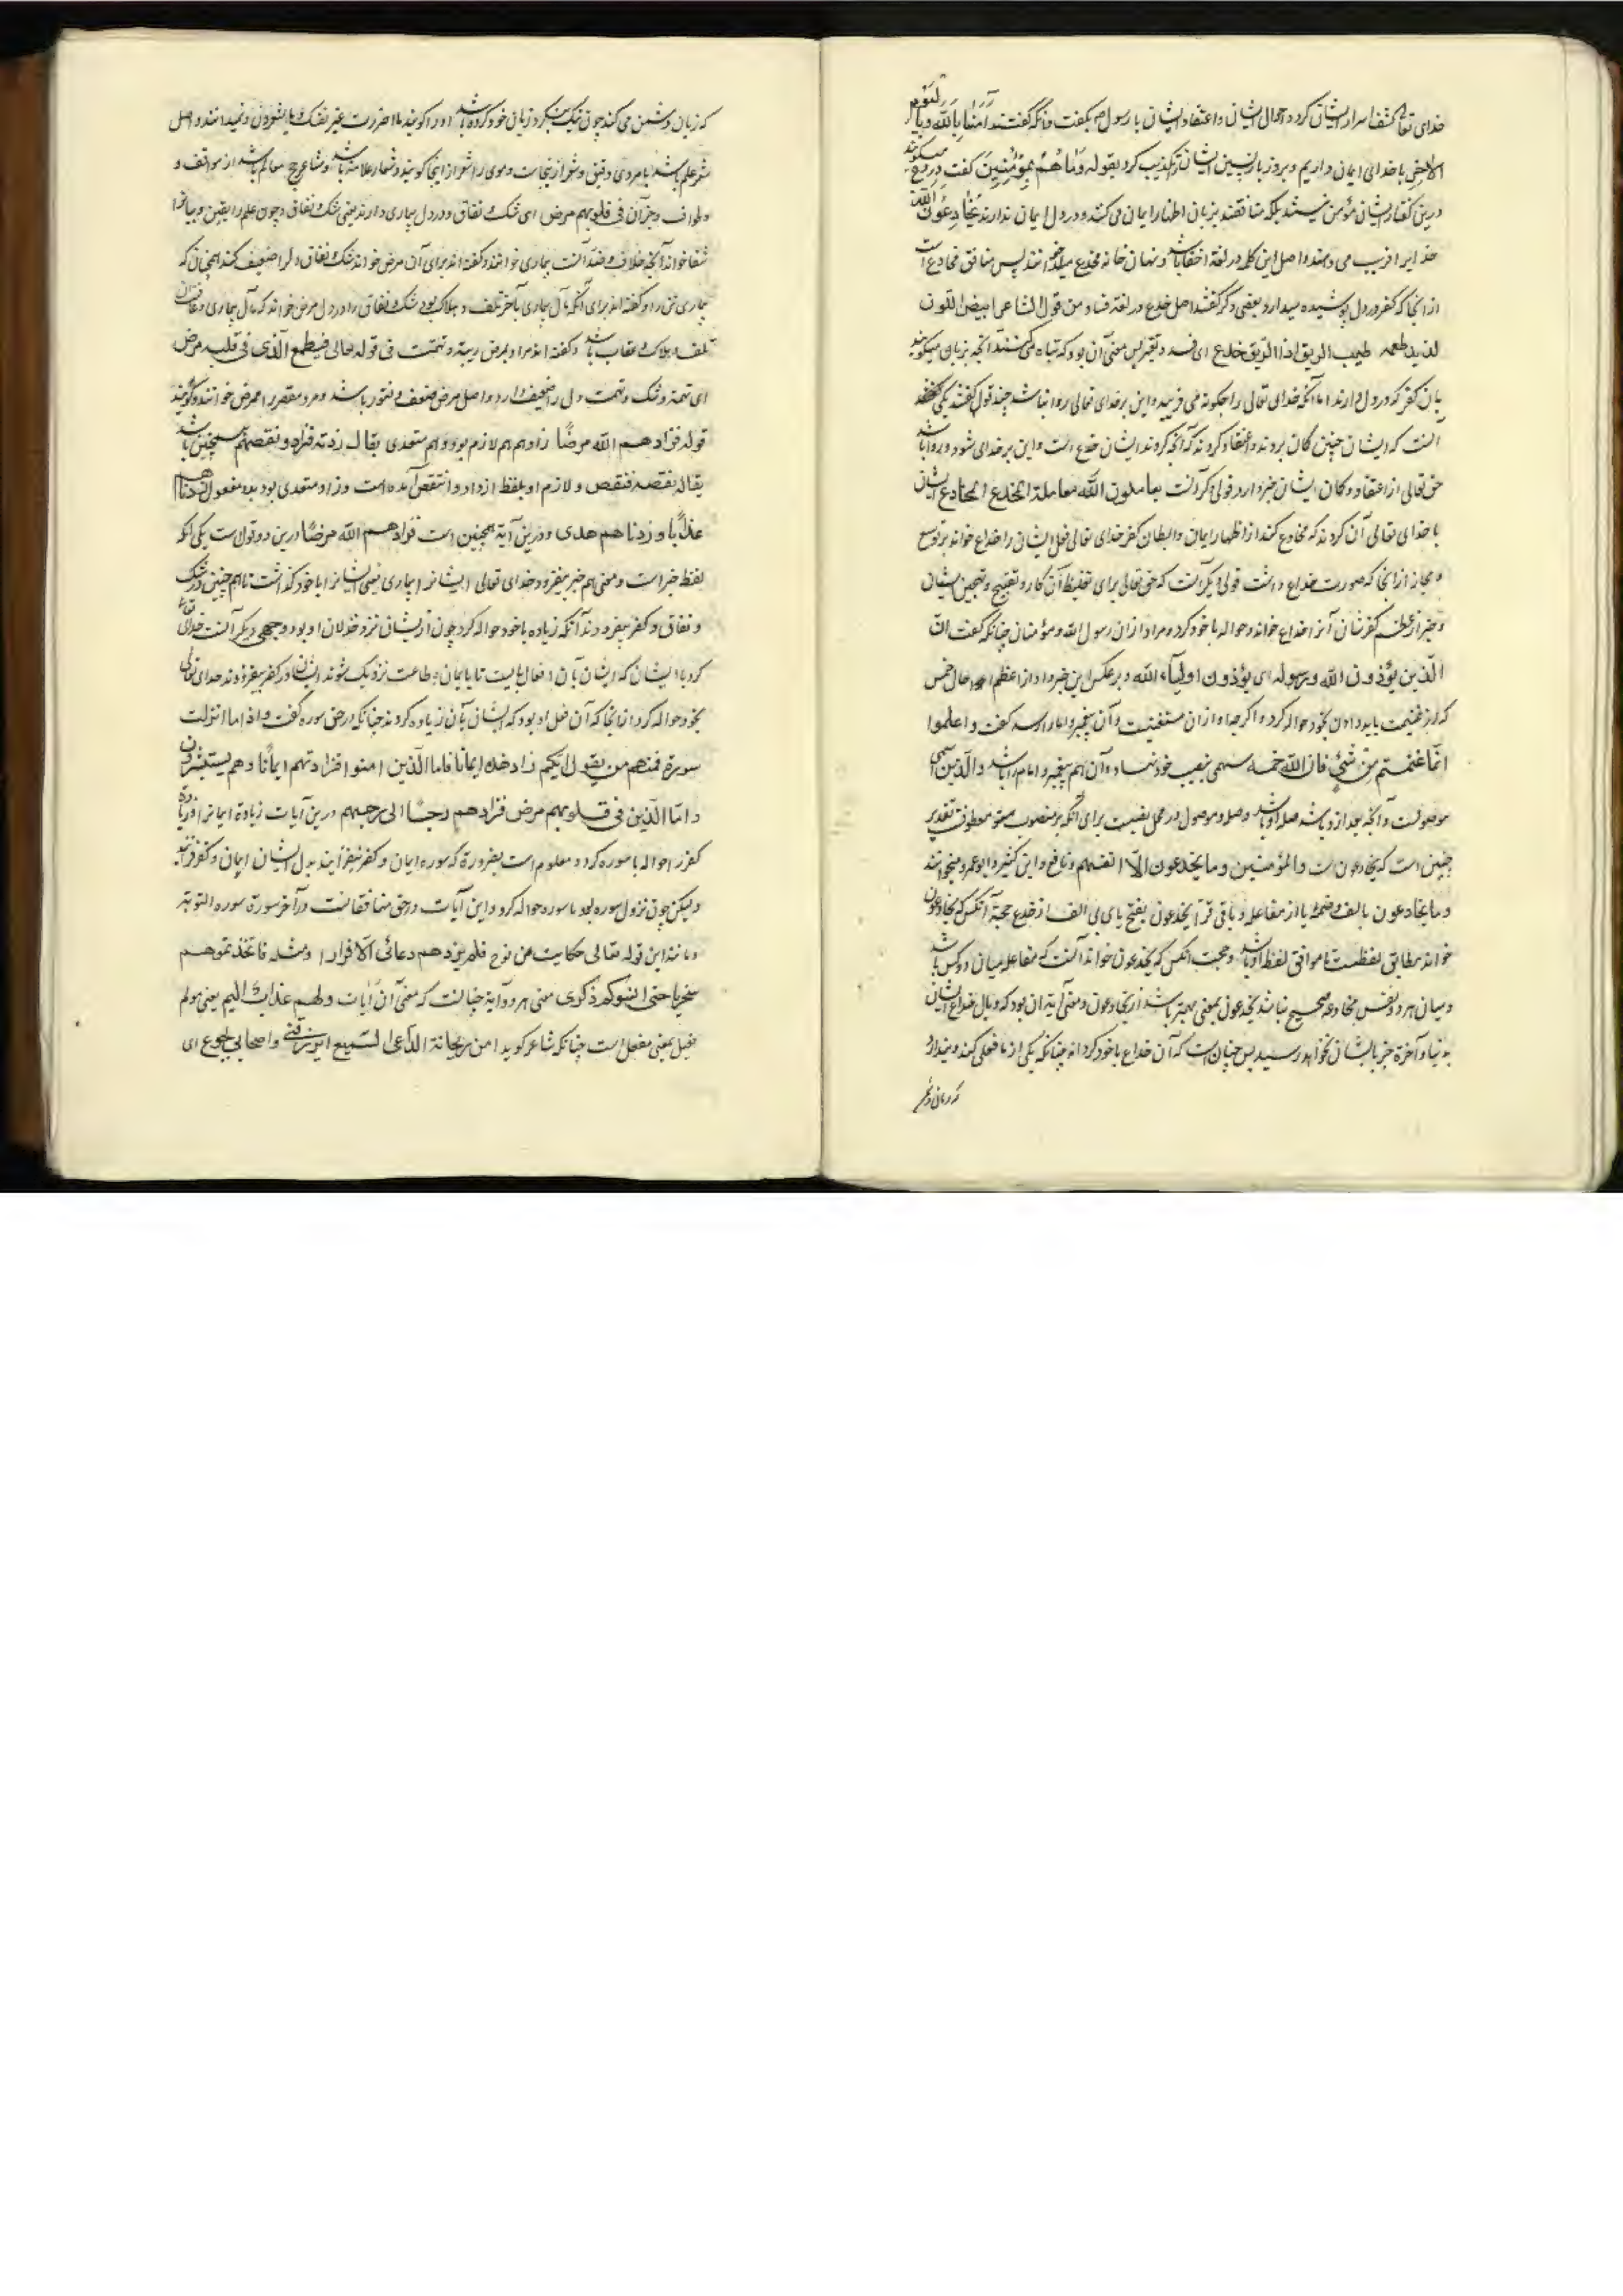 خدای تعالی کشف اسرار ایشان کرد و احوال ایشان و اعتقاد ایشان با رسول بگفت چنانکه گفتند آمَنّا بِاللّه وبالیوم
الاخر با خدای ایمان داریم و بروز بازپسین ایشان را تکذیب کرد بقوله وَمَا هُمْ بِمُؤْمِنِینَ گفت دروغ میگویند
درین گفتار ایشان مؤمن نیستند بلکه منافقند بزبان اظهار ایمان می کنند و در دل ایمان ندارند یُخَادِعُونَ اللّه
خدایرا فریب می دهند و اصل این کلمه در لغة اخفا باشد و نهان خانه مخدع میخوانند پس منافق مخادع است
از آنجا که کفر در دل پوشیده میدارد و بعضی دگر گفتند اصل خدع در لغة فساد من قول الشاعر ابیض اللون
لذیذ طعمه طیب الریق اذا الریق خدع ای فسد و تغیر پس معنی آن بود که تباه می کنند آنچه بزبان میگویند
بان کفر که در دل دارند اما آنکه خدای تعالی را چگونه می فریبند و این بر خدای تعالی روا نباشد چند قول گفتند یکی
آنست که ایشان چنین گمان بردند و اعتقاد کردند که آنچه کردند ایشان خدع است و این بر خدای شود و روا باشد
حق تعالی از اعتقاد و گمان ایشان خبر داد و قولی دگر آنست یعاملون اللّه معاملة المخادع ایشان
با خدای تعالی آن کردند که مخادع کند از اظهار ایمان و ابطان کفر خدای تعالی فعل ایشان را خداع خواند بر توسع
و مجاز از آنجا که صورت خداع داشت قولی دیگر آنست که حق تعالی برای تغلیظ آن کار و تقبیح و تهجین ایشان
و خبر از عظم کفرشان آنرا خداع خواند و حواله با خود کرد و مراد ازان رسول اللّه و مؤمنان چنانکه گفت انّ
الّذین یؤذون اللّه ورسوله ای یؤذون اولیاء اللّه و بر عکس این خبر داد از اعظم احوال خمس
که از غنیمت باید دادن بخود حواله کرد و اگر چه او ازان مستغنیست و آن پیغمبر و امام راست گفت واعلموا
انّما غنمتم من شیء فانّ للّه خمسه سهمی بنصیب خود نهاد و آن هم پیغمبر و امام را باشد والّذین اسمی
موصولست و آنچه بعد ازو باشد صله او باشد و صله و موصول در محل نصبست برای آنکه بر منصوب معطوف تقدیر
چنین است که یخادعون اللّه والمؤمنین وما یخدعون الّا انفسهم و نافع و ابن کثیر و ابو عمرو میخوانند
وما یخادعون بالف و ضمه یا از مفاعله و باقی قرّا یخدعون بفتح یای بی الف از خدع حجة آنکس که یخادعون
خواند مطابق لفظست تا موافق لفظ او باشد و حجت آنکس که یخدعون خواند آنست که مفاعله میان دو کس باشد
و میان مرد و نفس مخادعه صحیح نباشد یخدعون بمعنی بهتر باشد از یخادعون و معنی آیه آن بود که وبال خداع ایشان
بدنیا و آخرة جز با ایشان نخواهد رسید پس چنان است که آن خداع با خود کرده اند چنانکه یکی از ما فعلی کند و پندارد
که زیان دشمن می کند چون نیک بنگرد زیان خود کرده باشد او را گویند ما اضررت غیر نفسک وما یشعرون و نمیدانند و اصل
شعر علم باشد با مردی دقیق و شعر از اینجاست و موی را شعر از اینجا گویند و شعار علامت باشد و مشاعر حج معالم باشد از مواقف و
طواف و جز آن فی قلوبهم مرض ای شک و نفاق و در دل بیماری دارند یعنی شک و نفاق و چون علم را یقین و بیانرا
شفا خواند آنچه خلاف و ضد آنست بیماری خوانند و گفته اند برای آن مرض خواند شک و نفاق دل را ضعیف کند همچنان که
بیماری تن را و گفته اند برای آنکه مآل بیماری بآخر تلف و هلاک بود شک و نفاق را در دل مرض خواند که مآل بیماری و
تلف و هلاک و عقاب باشد و گفته اند مراد بمرض ریبة و تهمت فی قوله تعالی فیطمع الّذی فی قلبه مرض
ای تهمة و شک و تهمت دل را ضعیف دارد و اصل مرض ضعف و فتور باشد و مرد مقصر را ممرض خوانند و گویند
قوله فزادهم اللّه مرضًا زاد هم لازم بود و هم متعدی یقال زدته فزاد و نقصهم همچنین باشد
یقال نقصه فنقص و لازم او بلفظ ازداد و انتقص آمده است و زاد متعدی بود بدو مفعول زدناهم
عذابًا و زدناهم هدی و درین آیة همچنین است فزادهم اللّه مرضًا درین دو قولست یکی آنکه
لفظ خبر است و معنی هم خبر بیفزود خدای تعالی ایشانرا بیماری یعنی ایشانرا با خود گذاشت تا هم چنین در شک
و نفاق و کفر بیفزودند آنکه زیاده با خود حواله کرد چون از ایشان نزد خذلان او بود و وجهی دیگر آنست خدای تعالی
کرد با ایشان که ایشان بآن افعال بایست تا بایمان و طاعت نزدیک شوند ایشان در کفر بیفزودند خدای تعالی
بخود حواله کرد از آنجا که آن فعل او بود که ایشان بآن زیاده کردند چنانکه در حق سوره گفت واذا ما انزلت
سورة فمنهم من یقول ایّکم زادته هذه ایمانا فاما الّذین امنوا فزادتهم ایمانًا وهم یستبشرون
وامّا الّذین فی قلوبهم مرض فزادهم رجسًا الی رجسهم درین آیات زیادة ایمانرا و زیادة
کفر را حواله با سوره کرد و معلوم است بضرورة که سوره ایمان و کفر نیفزایند بل ایشان ایمان و کفر
ولیکن چون نزول سوره بود با سوره حواله کرد و این آیات در حق منافقانست در آخر سورة سوره التوبة
و مانند این قوله تعالی حکایت عن نوح فلم یزدهم دعائی الّا فرارا و مثله فاتخذتموهم
سخریا حتی انسوکم ذکری معنی هر دو آیة چنانست که معنی آن آیات ولهم عذاب الیم یعنی مولم
فعیل بمعنی مفعل است چنانکه شاعر گوید امن ریحانة الداعی السمیع یؤرقنی واصحابی هجوع ای